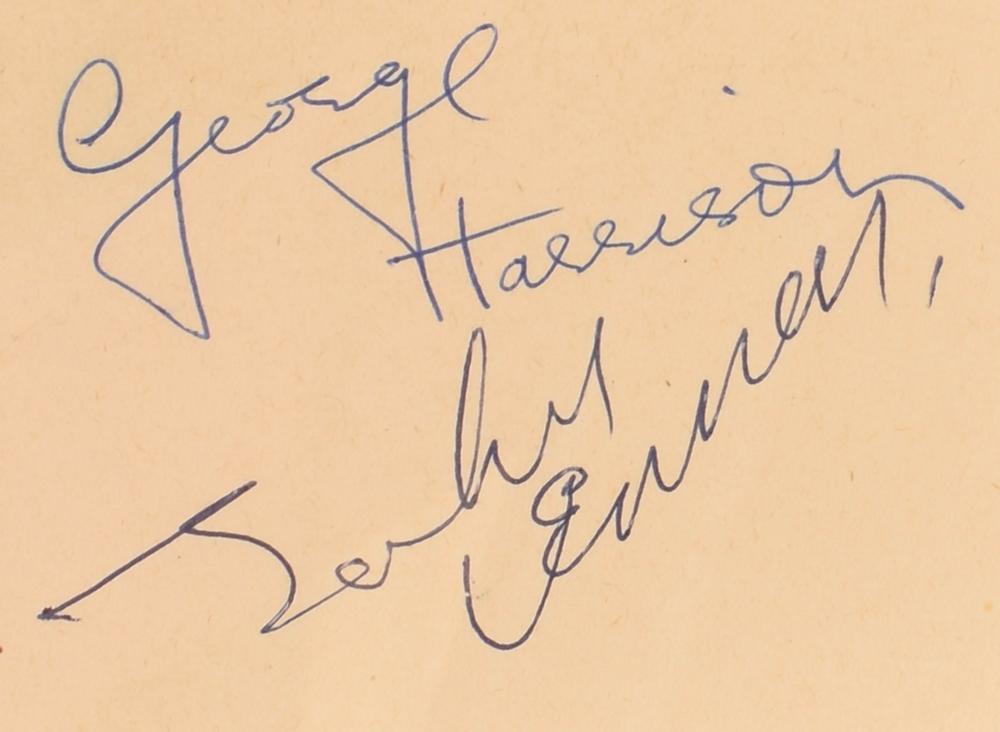 George
Harrison
John
Lennon